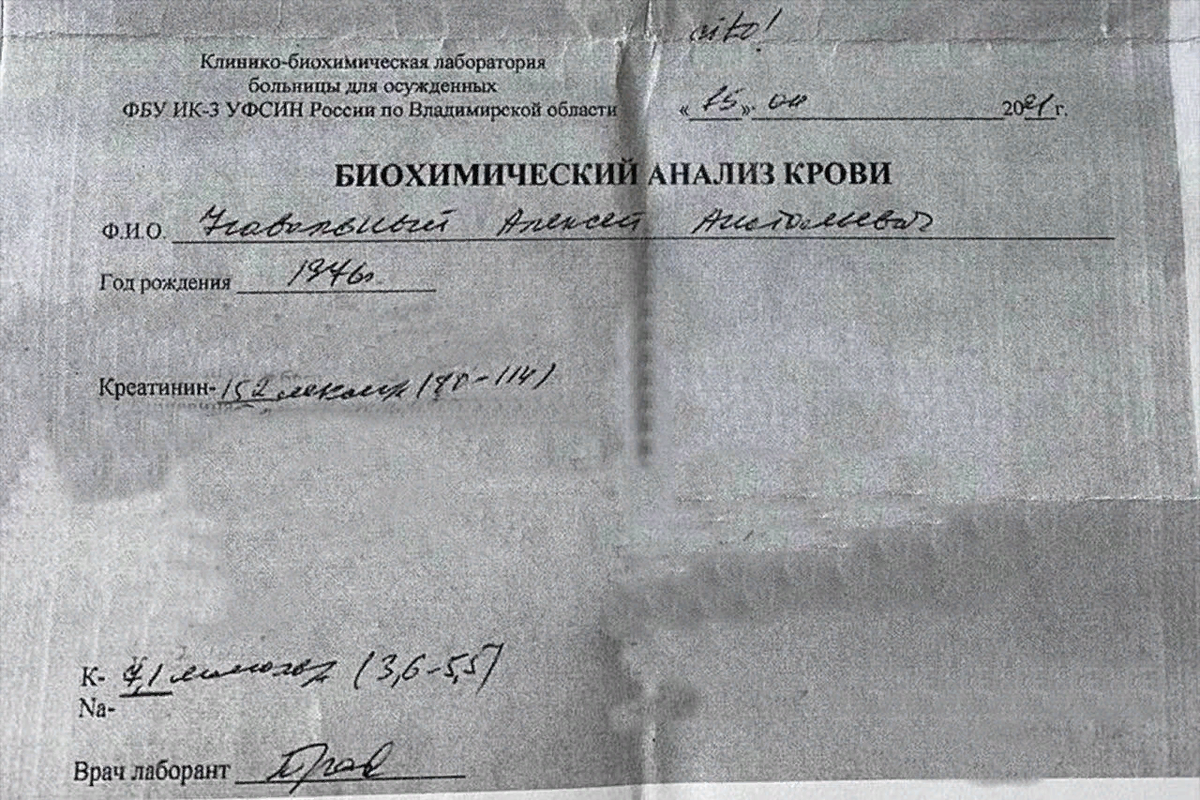 cito!
Клинико-биохимическая лаборатория
больницы для осужденных
ФБУ ИК-3 УФСИН России по Владимирской области
«15». 04 2021 г.
БИОХИМИЧЕСКИЙ АНАЛИЗ КРОВИ
Ф.И.О. Навальный Алексей Анатольевич
Год рождения 1976г.
Креатинин- 152 мкмоль (70-114)
К- 7,1 ммоль (3,6-5,5)
Na-
Врач лаборант